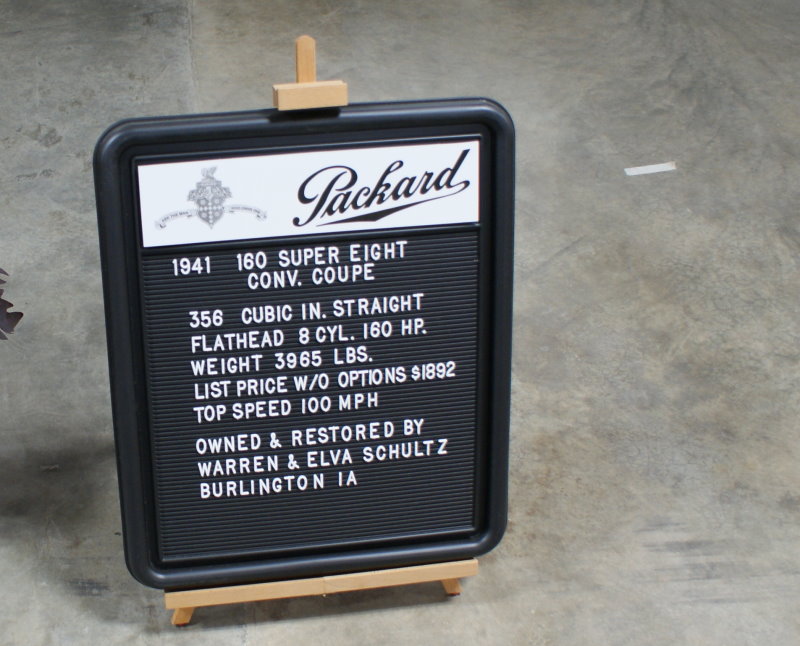 Packard
1941 160 SUPER EIGHT
CONV. COUPE
356 CUBIC IN. STRAIGHT
FLATHEAD 8 CYL. 160 HP.
WEIGHT 3965 LBS.
LIST PRICE W/O OPTIONS $1892
TOP SPEED 100 MPH
OWNED & RESTORED BY
WARREN & ELVA SCHULTZ
BURLINGTON IA